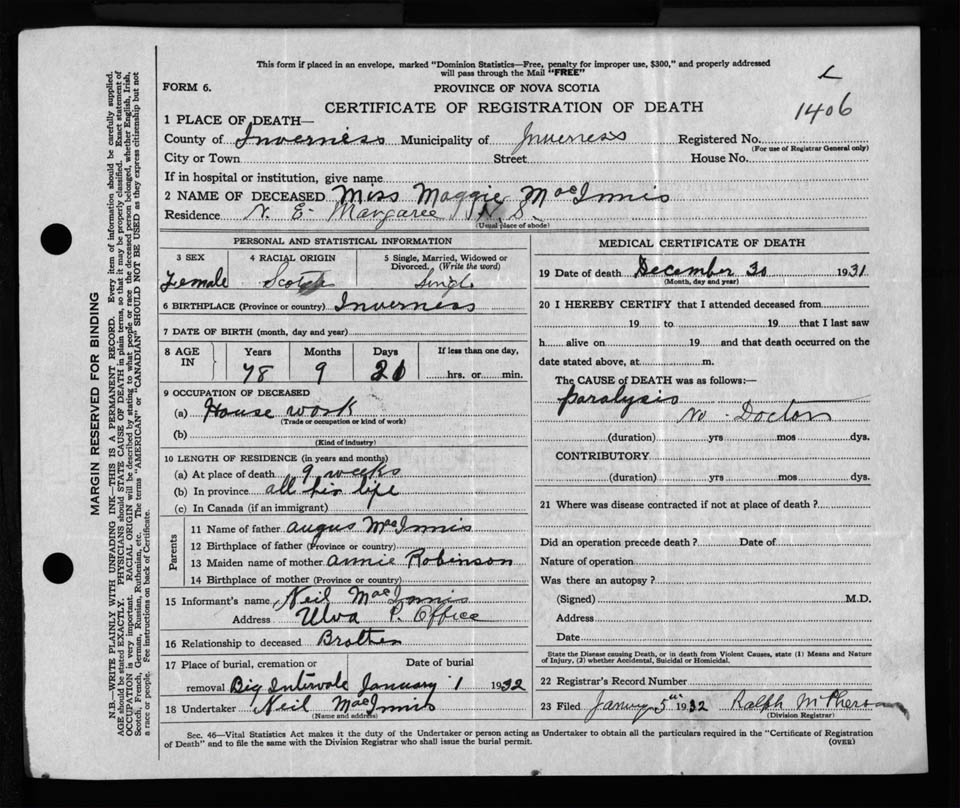 This form if placed in an envelope, marked "Dominion Statistics—Free, penalty for improper use, $300," and properly addressed
will pass through the Mail "FREE"
FORM 6.
PROVINCE OF NOVA SCOTIA
1406
CERTIFICATE OF REGISTRATION OF DEATH
1 PLACE OF DEATH—
County of Inverness Municipality of Inverness Registered No.
(For use of Registrar General only)
City or Town Street House No.
If in hospital or institution, give name
2 NAME OF DECEASED Miss Maggie MacInnis
Residence N. E. Margaree N. S.
(Usual place of abode)
PERSONAL AND STATISTICAL INFORMATION
3 SEX 4 RACIAL ORIGIN 5 Single, Married, Widowed or
Divorced. (Write the word)
Female Scotch Single
6 BIRTHPLACE (Province or country) Inverness
7 DATE OF BIRTH (month, day and year)
8 AGE IN Years Months Days If less than one day,
78 9 26 hrs. or min.
9 OCCUPATION OF DECEASED
(a) House work
(Trade or occupation or kind of work)
(b)
(Kind of industry)
10 LENGTH OF RESIDENCE (in years and months)
(a) At place of death 9 weeks
(b) In province all his life
(c) In Canada (if an immigrant)
Parents
11 Name of father Angus MacInnis
12 Birthplace of father (Province or country)
13 Maiden name of mother Annie Robinson
14 Birthplace of mother (Province or country)
15 Informant's name Neil MacInnis
Address Ulva P. Office
16 Relationship to deceased Brother
17 Place of burial, cremation or Date of burial
removal Big Intervale January 1 1932
18 Undertaker Neil MacInnis
(Name and address)
MEDICAL CERTIFICATE OF DEATH
19 Date of death December 30 1931
(Month, day and year)
20 I HEREBY CERTIFY that I attended deceased from
19 to 19 that I last saw
h alive on 19 and that death occurred on the
date stated above, at m.
The CAUSE OF DEATH was as follows:—
Paralysis
No Doctor
(duration) yrs mos dys.
CONTRIBUTORY
(duration) yrs mos dys.
21 Where was disease contracted if not at place of death?
Did an operation precede death? Date of
Nature of operation
Was there an autopsy?
(Signed) M.D.
Address
Date
State the Disease causing Death, or in death from Violent Causes, state (1) Means and Nature
of Injury, (2) whether Accidental, Suicidal or Homicidal.
22 Registrar's Record Number
23 Filed January 5th 1932 Ralph McPherson
(Division Registrar)
Sec. 46—Vital Statistics Act makes it the duty of the Undertaker or person acting as Undertaker to obtain all the particulars required in the "Certificate of Registration
of Death" and to file the same with the Division Registrar who shall issue the burial permit.
(OVER)
MARGIN RESERVED FOR BINDING
N.B.—WRITE PLAINLY WITH UNFADING INK—THIS IS A PERMANENT RECORD. Every item of information should be carefully supplied.
AGE should be stated EXACTLY. PHYSICIANS should STATE CAUSE OF DEATH in plain terms, so that it may be properly classified. Exact statement of
OCCUPATION is very important. RACIAL ORIGIN will be described by stating to what people or race the deceased person belonged, whether English, Irish,
Scotch, French, German, Russian, Ruthenian, etc. The terms "AMERICAN" or "CANADIAN" SHOULD NOT BE USED as they express citizenship but not
a race or people. Fee instructions on back of Certificate.